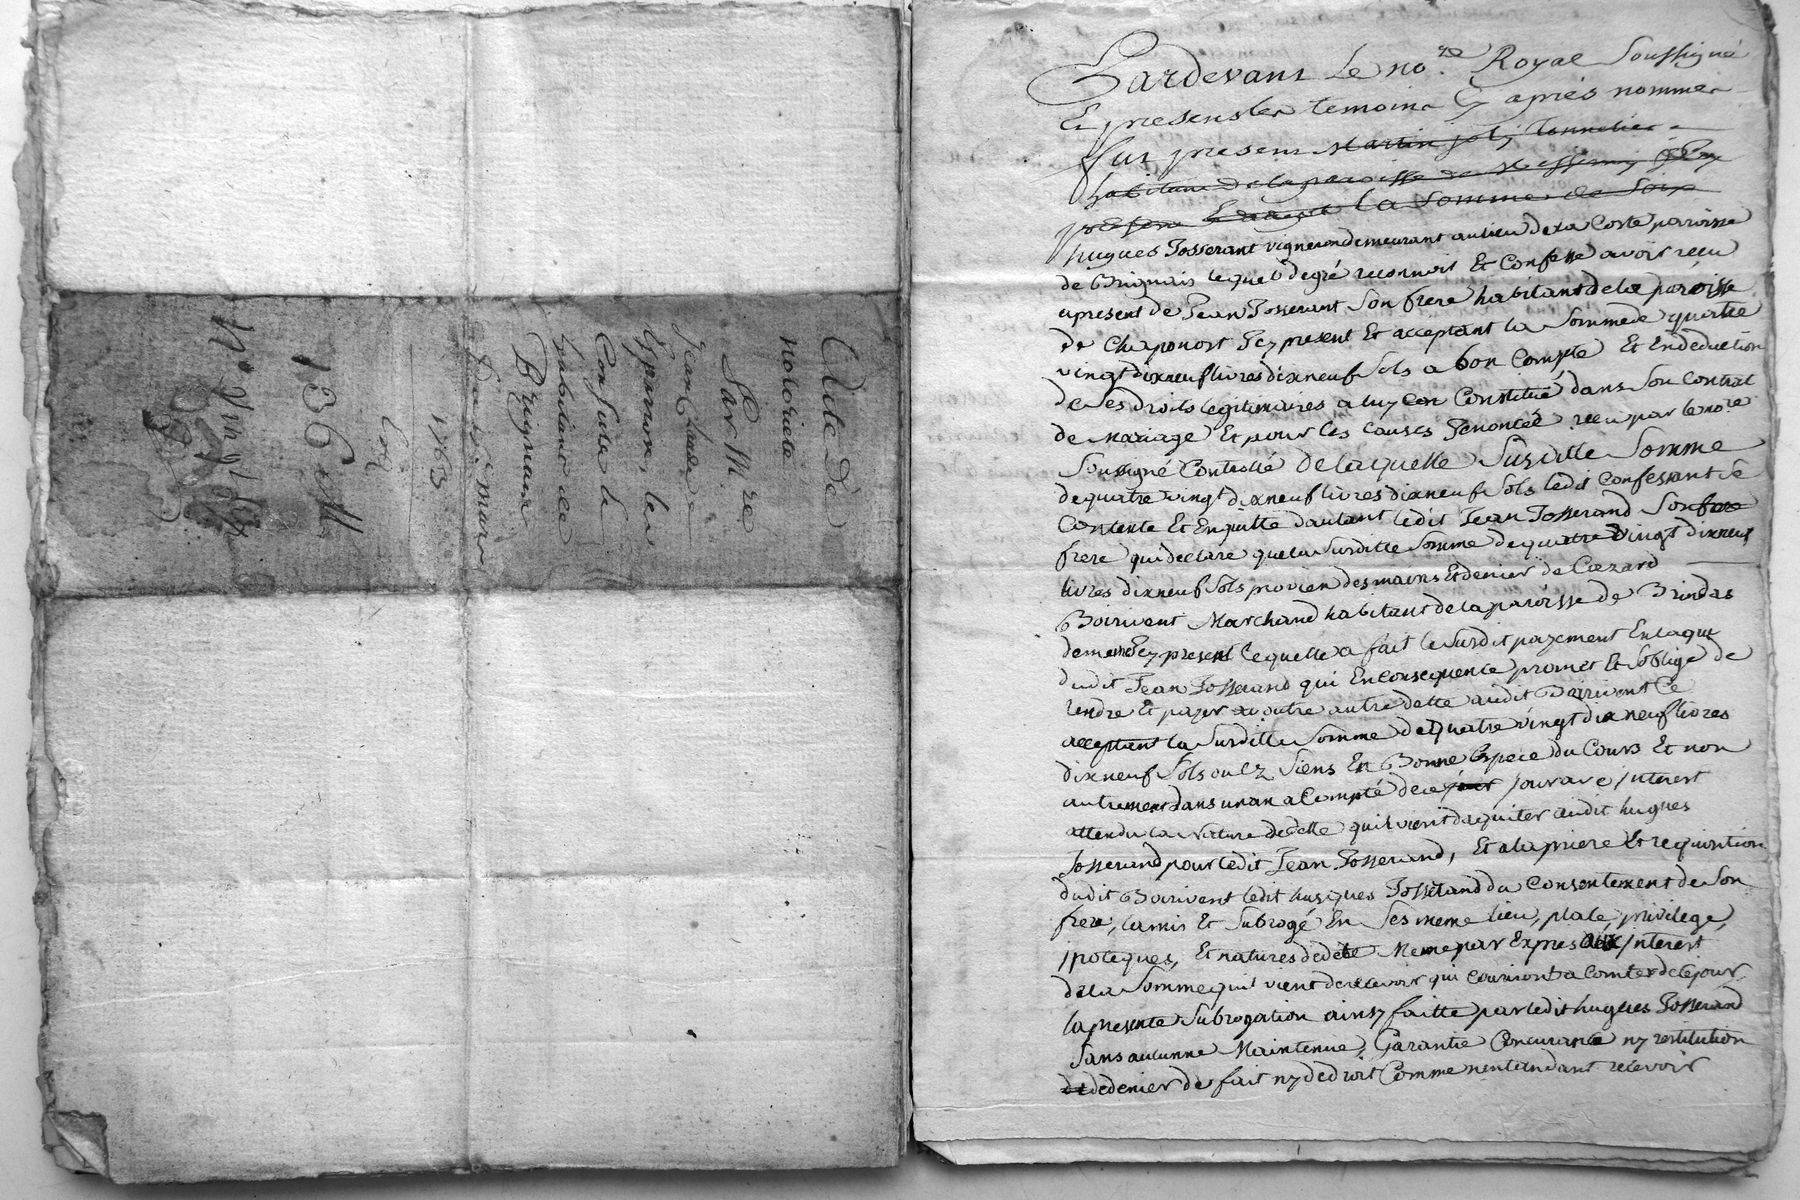 Acte De
notorieté
Par M.re
jean Claude
les
Consuls de
habitans de
Brignais
Du mars
1763
Cn
136 M
N° Vingt Six
Pardevant Le no.re Royal Soussigné
Et presens les temoins Cy apres nommes
Fut present Martin joly tonnelier
habitans de la paroisse de
present la Somme de Soix
hugues Josserant vigneron demeurant au lieu de la Coste paroisse
de Brignais lequel de gré reconnoit Et Confesse avoir reçu
apresent de Jean Josserant Son frere habitant de la paroisse
de Chaponost Jcy present Et acceptant la Somme de quatre
vingt dixneuf livres dixneuf Sols a bon Compte Et En deduction
de Ses droits legitimaires a luy Constitué dans Son Contrat
de Mariage Et pour les Causes Jenoncée reçu par le no.re
Soussigné Controllé de laquelle Susditte Somme
de quatre vingt dixneuf livres dixneuf Sols ledit Confessant Se
Contente Et En quitte dautant ledit Jean Josserand Son frere
frere qui declare que la Susditte Somme de quatre vingt dixneuf
livres dixneuf Sols provien des mains Et denier de Cœzard
Boirivent Marchand habitant de la paroisse de Brindas
deme Jcy present lequelle a fait le Susdit payement En laquit
dudit Jean Josserand qui En consequence promet Et Soblige de
rendre Et payer outre autre dette audit Boirivent Ce
acceptant la Susditte Somme de Quatre vingt dix neuf livres
dixneuf Sols ou ez Siens En Bonne Espece du Cours Et non
autrement dans un an a Compté de ce jour jour avec jnterest
attendu la Nature de dette quil vient daquiter audit hugues
Josserand pour ledit Jean Josserand, Et a la priere Et requisition
dudit Boirivent ledit hugues Josserand du Consentement de Son
frere, la mis Et Subrogé En Ses meme lieu, place, privilege,
jpoteques, Et natures de dete Meme par Expres aux jnterest
de la Somme quil vient de recevoir qui couriront a Comter de ce jour
la presente Subrogation ainsy faitte par ledit hugues Josserand
Sans aucunne Maintenue, Garantie Concurance ny restitution
de de denier de fait ny de droit Comme nentandant recevoir